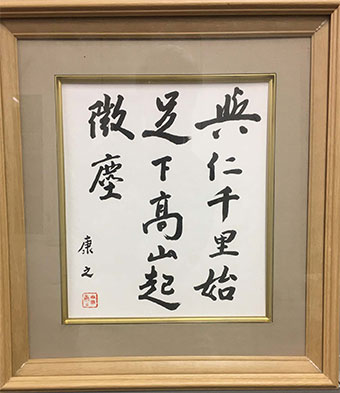 與仁千里始
足下髙山起
微塵
康之